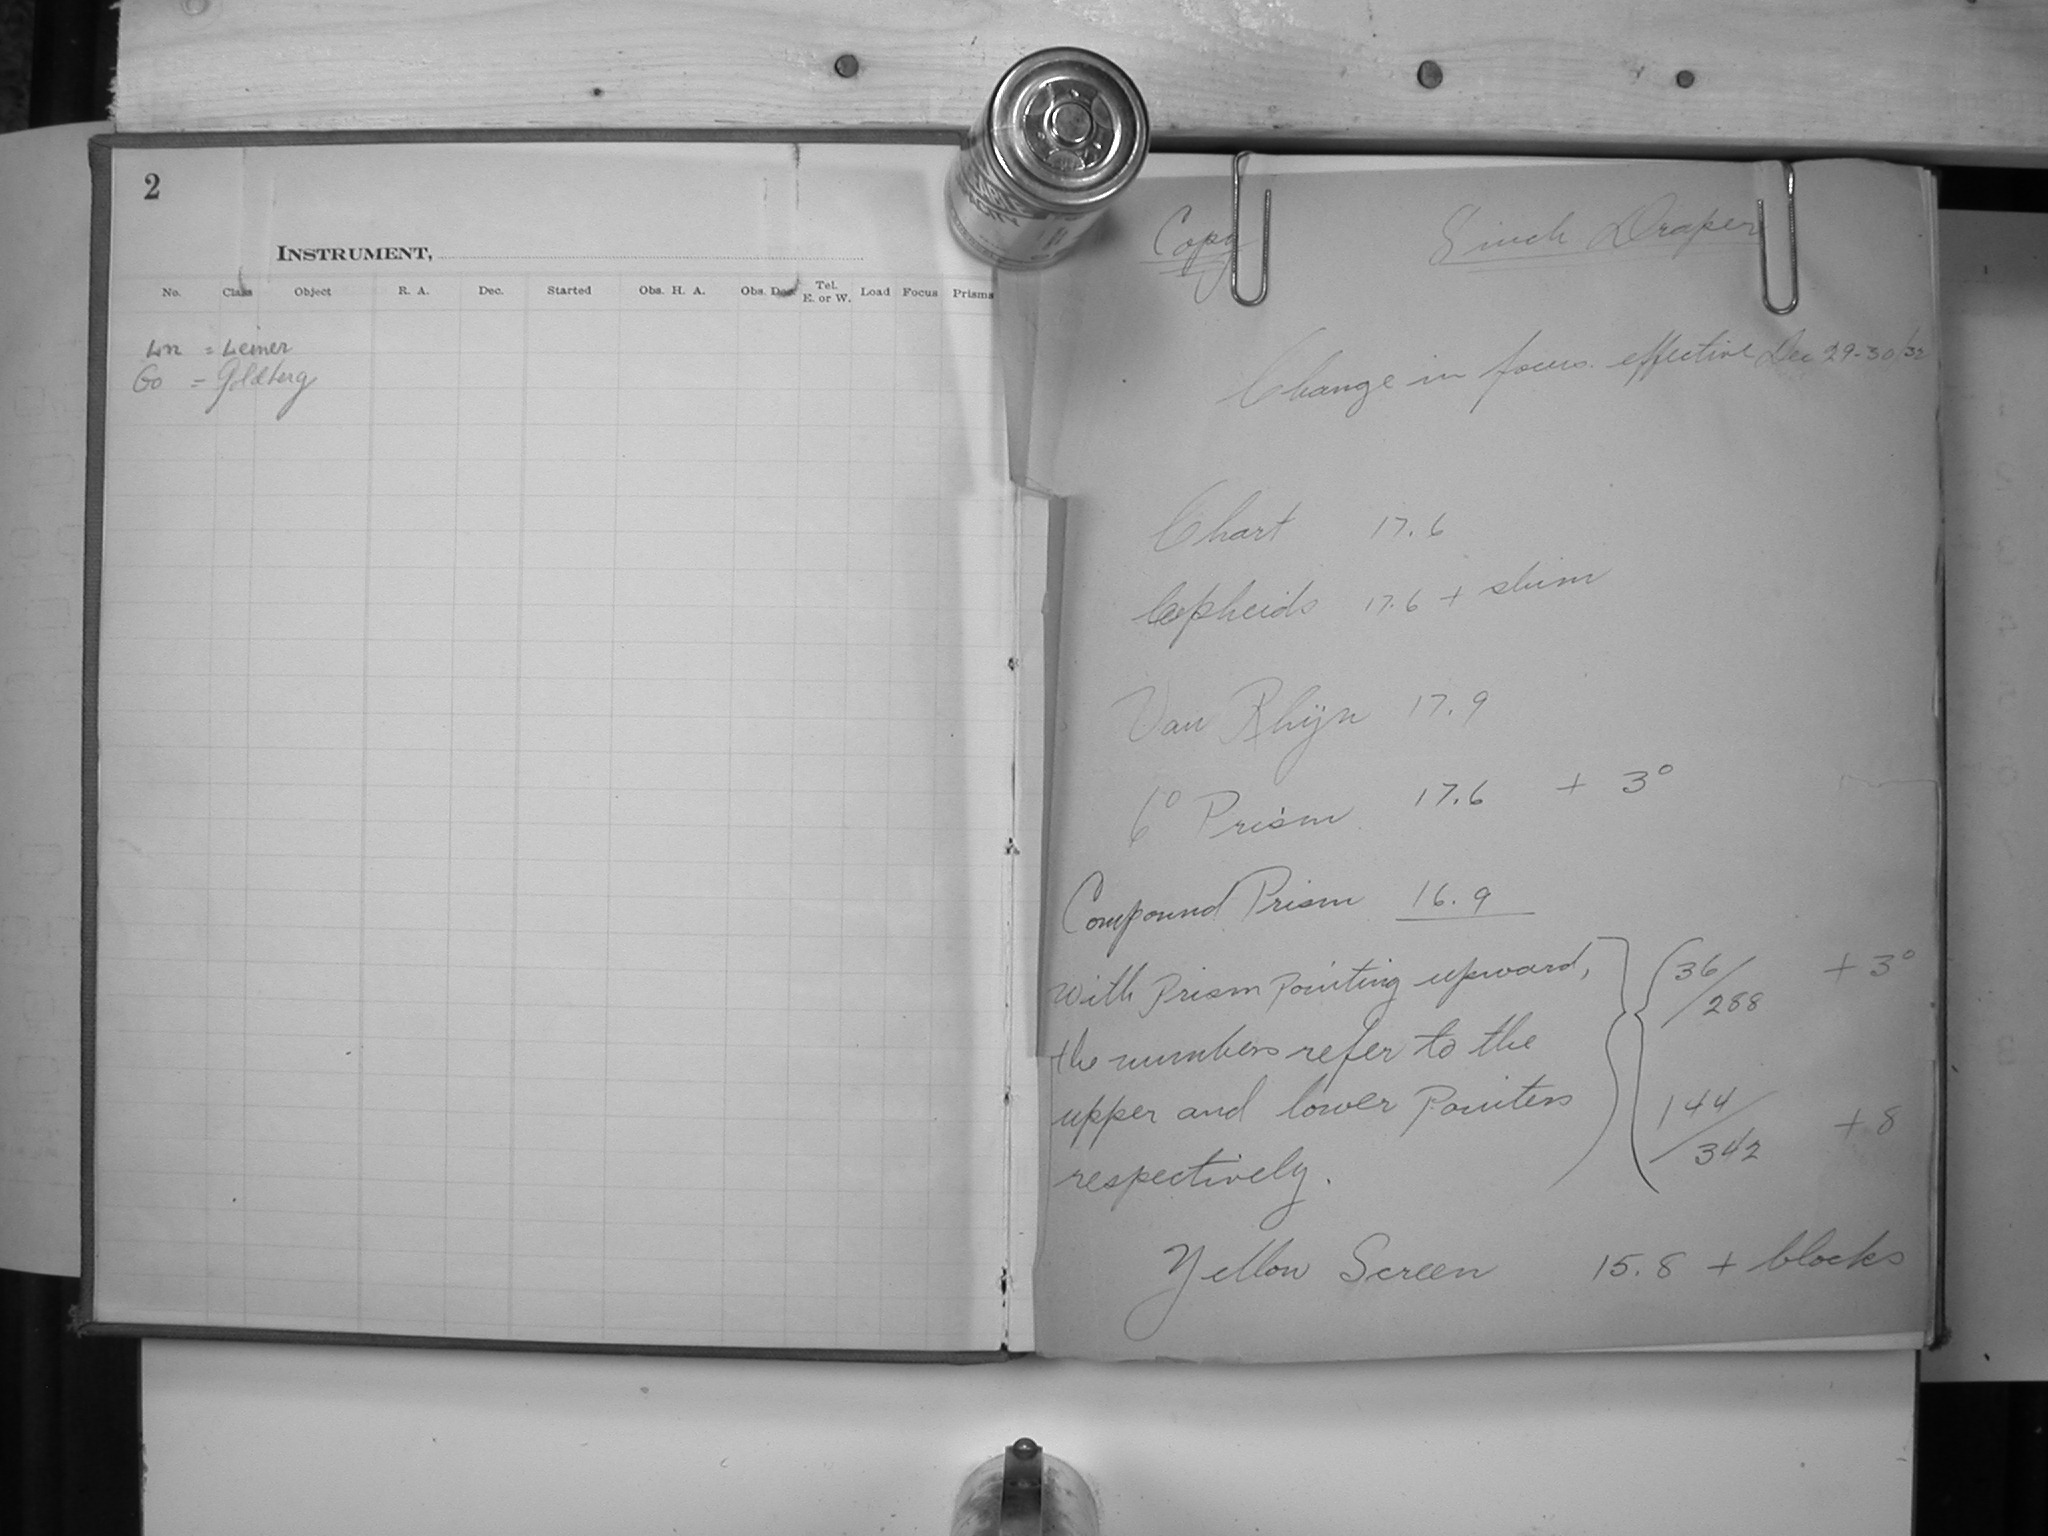 2
INSTRUMENT,
No. Class Object R. A. Dec. Started Obs. H. A. Obs. Dec. Tel. E. or W. Load Focus Prisms
Ln = Leiner
Go = Goldberg
Copy 8 inch Draper
Change in focus effective Dec 29-30/32
Chart 17.6
Cepheids 17.6 + shim
Van Rhijn 17.9
6° Prism 17.6 + 3°
Compound Prism 16.9
With Prism Pointing upward,
the numbers refer to the
upper and lower Pointers
respectively.
36/288 + 3°
144/342 + 8
Yellow Screen 15.8 + blocks